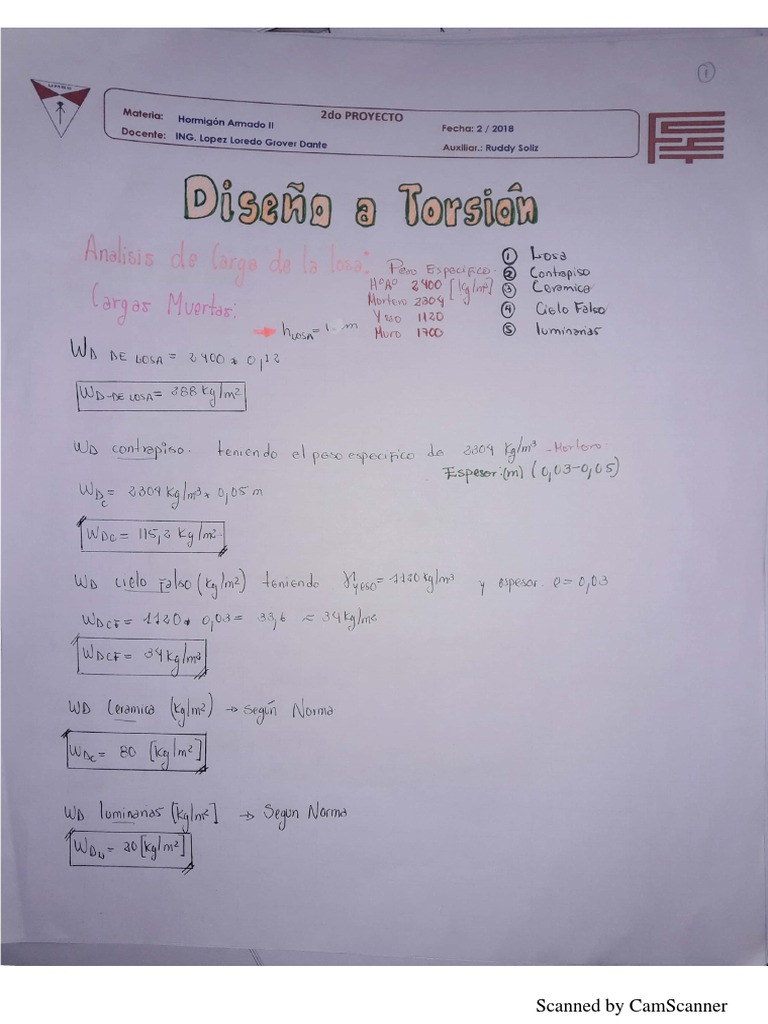 1
UMSS
Materia: Hormigón Armado II
2do PROYECTO
Fecha: 2 / 2018
Docente: ING. Lopez Loredo Grover Dante
Auxiliar.: Ruddy Soliz
Diseño a Torsión
Analisis de Carga de la losa:
Cargas Muertas:
Peso Especifico
HºAº 2400 [kg/m³]
Mortero 2304
Yeso 1120
Muro 1700
1 Losa
2 Contrapiso
3 Ceramica
4 Cielo Falso
5 luminarias
h LOSA =
m
WD DE LOSA = 2400 * 0,12
WD-DE LOSA = 288 Kg/m²
WD contrapiso. teniendo el peso especifico de 2304 Kg/m³ - Mortero
Espesor:(m) (0,03-0,05)
WDc = 2304 Kg/m³ * 0,05 m
WDc = 115,2 Kg/m²
WD cielo Falso (Kg/m²) teniendo γyeso = 1120 Kg/m³ y espesor. e = 0,03
WDCF = 1120 * 0,03 = 33,6 ≈ 34 Kg/m²
WDCF = 34 Kg/m³
WD Ceramica (Kg/m²) → Según Norma
WDc = 80 [Kg/m²]
WD luminarias [Kg/m²] → Según Norma
= 20 [Kg/m²]
Scanned by CamScanner